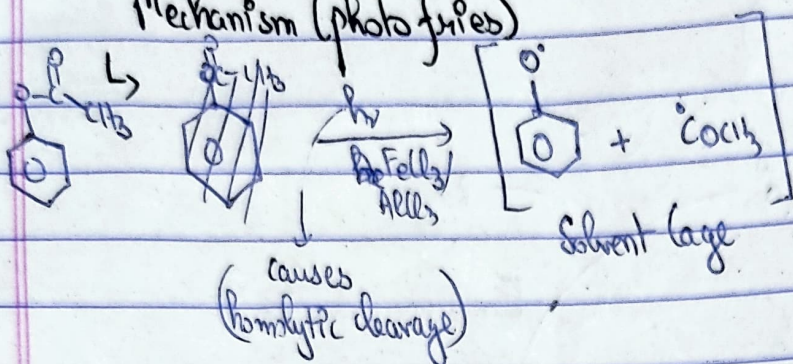 Mechanism (photo fries)
O
O-C
CH3
hν
FeCl3/
AlCl3
O•
+ •COCH3
Solvent Cage
causes
(homolytic cleavage)